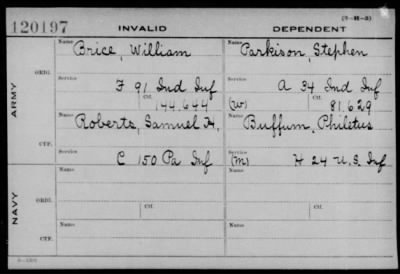 (3-H-3)
120197 INVALID DEPENDENT
ARMY
ORIG.
Name Brice, William
Service F 91 Ind Inf
Ctf. 144.644
Name Parkison, Stephen
Service A 34 Ind Inf
(W) Ctf. 81.629
CTF.
Name Roberts, Samuel H.
Service C 150 Pa Inf
Name Buffum, Philetus
Service (M) H 24 U.S. Inf
NAVY
ORIG.
Name Ctf.
Name Ctf.
CTF.
Name
Name